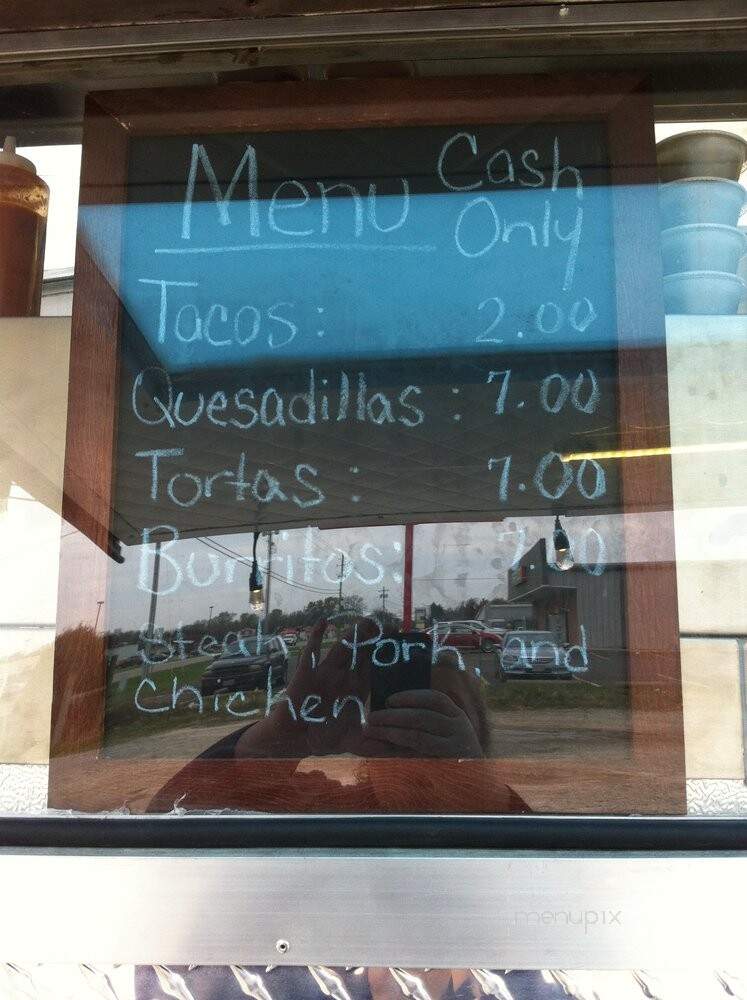 Menu Cash Only
Tacos: 2.00
Quesadillas: 7.00
Tortas: 7.00
Burritos: 7.00
Steak, Pork, and
Chicken
menupix